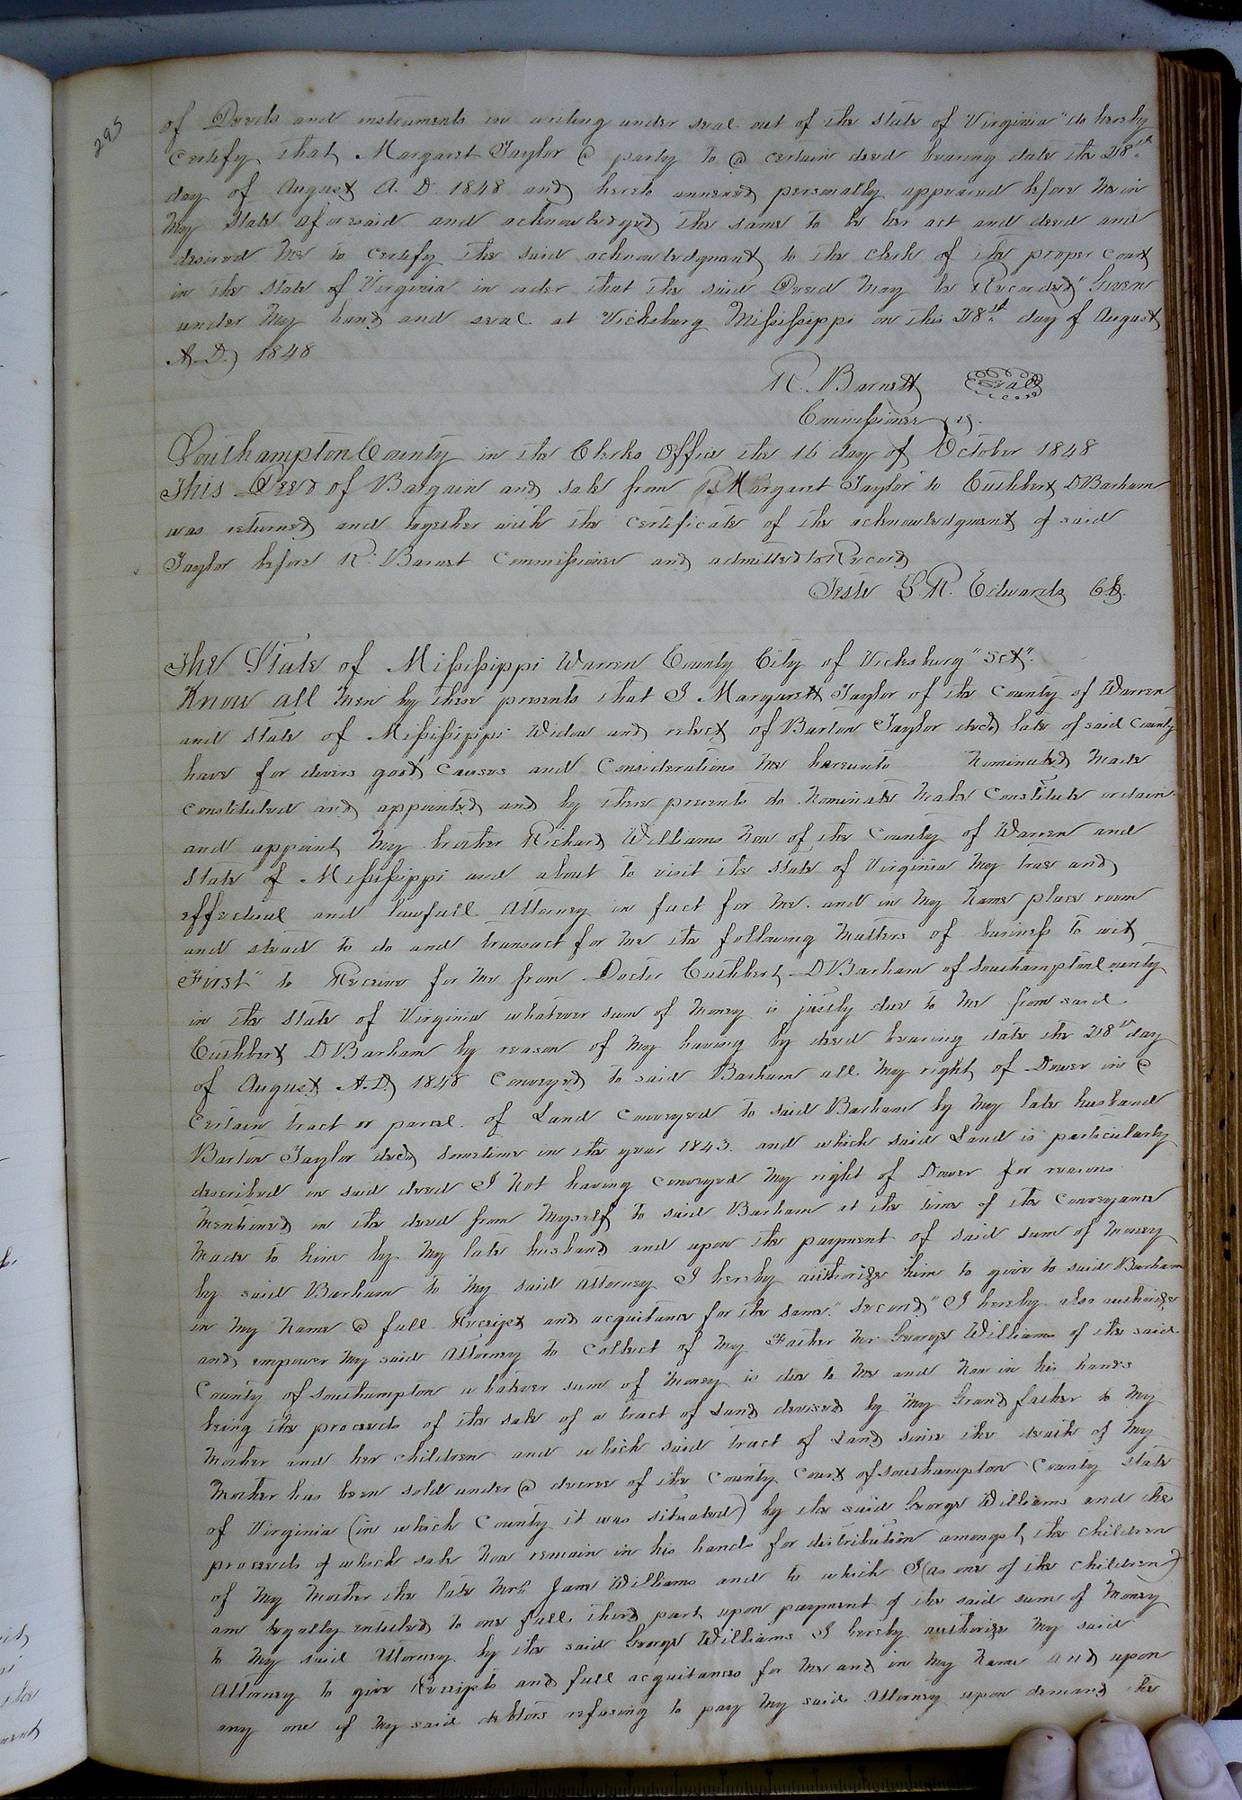 295
of Deeds and instruments in writing under seal out of the state of Virginia" do hereby
certify that Margaret Taylor a party to a certain deed bearing date the 28th
day of August A. D. 1848 and hereto annexed personally appeared before me in
my State aforesaid and acknowledged the same to be her act and deed and
desired me to certify the said acknowledgment to the clerk of the proper court
in the State of Virginia in order that the said Deed may be Recorded" Given
under my hand and seal at Vicksburg Mississippi on this 28th day of August
A.D. 1848
R. Barnett Seal
Commissioner
Southampton County in the Clerks Office the 16 day of October 1848
This Deed of Bargain and sale from Margaret Taylor to Cuthbert D Barham
was returned and together with the certificate of the acknowledgment of said
Taylor before R. Barnet Commissioner and admitted to Record
Teste L R. Edwards Clk.
The State of Mississippi Warren County City of Vicksburg "Sct".
Know all men by these presents that I Margarett Taylor of the County of Warren
and State of Mississippi Widow and relict of Barton Taylor decd late of said County
have for divers good Causes and Considerations me hereunto Nominated Made
constituted and appointed and by these presents do Nominate Make Constitute ordain
and appoint my brother Richard Williams Now of the County of Warren and
State of Mississippi and about to visit the State of Virginia my true and
effectual and lawfull Attorney in fact for me and in my Name place room
and stead to do and transact for me the following Matters of business to wit
First" to Receive for me from Doctor Cuthbert D Barham of Southampton County
in the State of Virginia whatever sum of Money is justly due to me from said
Cuthbert D Barham by reason of my having by deed bearing date the 28th day
of August A.D. 1848 Conveyed to said Barham all my right of Dower in a
Certain tract or parcel of Land Conveyed to said Barham by my late husband
Barton Taylor decd sometime in the year 1843. and which said Land is particularly
described in said deed I Not having conveyed my right of Dower for reasons
Mentioned in the deed from Myself to said Barham at the time of the Conveyance
Made to him by my late husband and upon the payment of said sum of Money
by said Barham to my said attorney I hereby authorize him to give to said Barham
in my Name a full Receipt and acquitance for the same." Second" I hereby also authorize
and empower my said Attorney to Collect of my Father Mr George Williams of the said
County of Southampton whatever sum of Money is due to me and Now in his hands
being the proceeds of the sale of a tract of Land devised by my Grand father to my
Mother and her children and which said tract of Land since the death of my
Mother has been sold under a decree of the County Court of Southampton County State
of Virginia (in which County it was situated) by the said George Williams and the
proceeds of which sale Now remain in his hands for distribution amongst the children
of my Mother the late Mrs Jane Williams and to which I (as one of the children)
am legally entitled to one full third part upon payment of the said sum of Money
to my said Attorney by the said George Williams I hereby authorize my said
Attorney to give Receipts and full acquitances for me and in my Name and upon
any one of my said debtors refusing to pay my said Attorney upon demand the